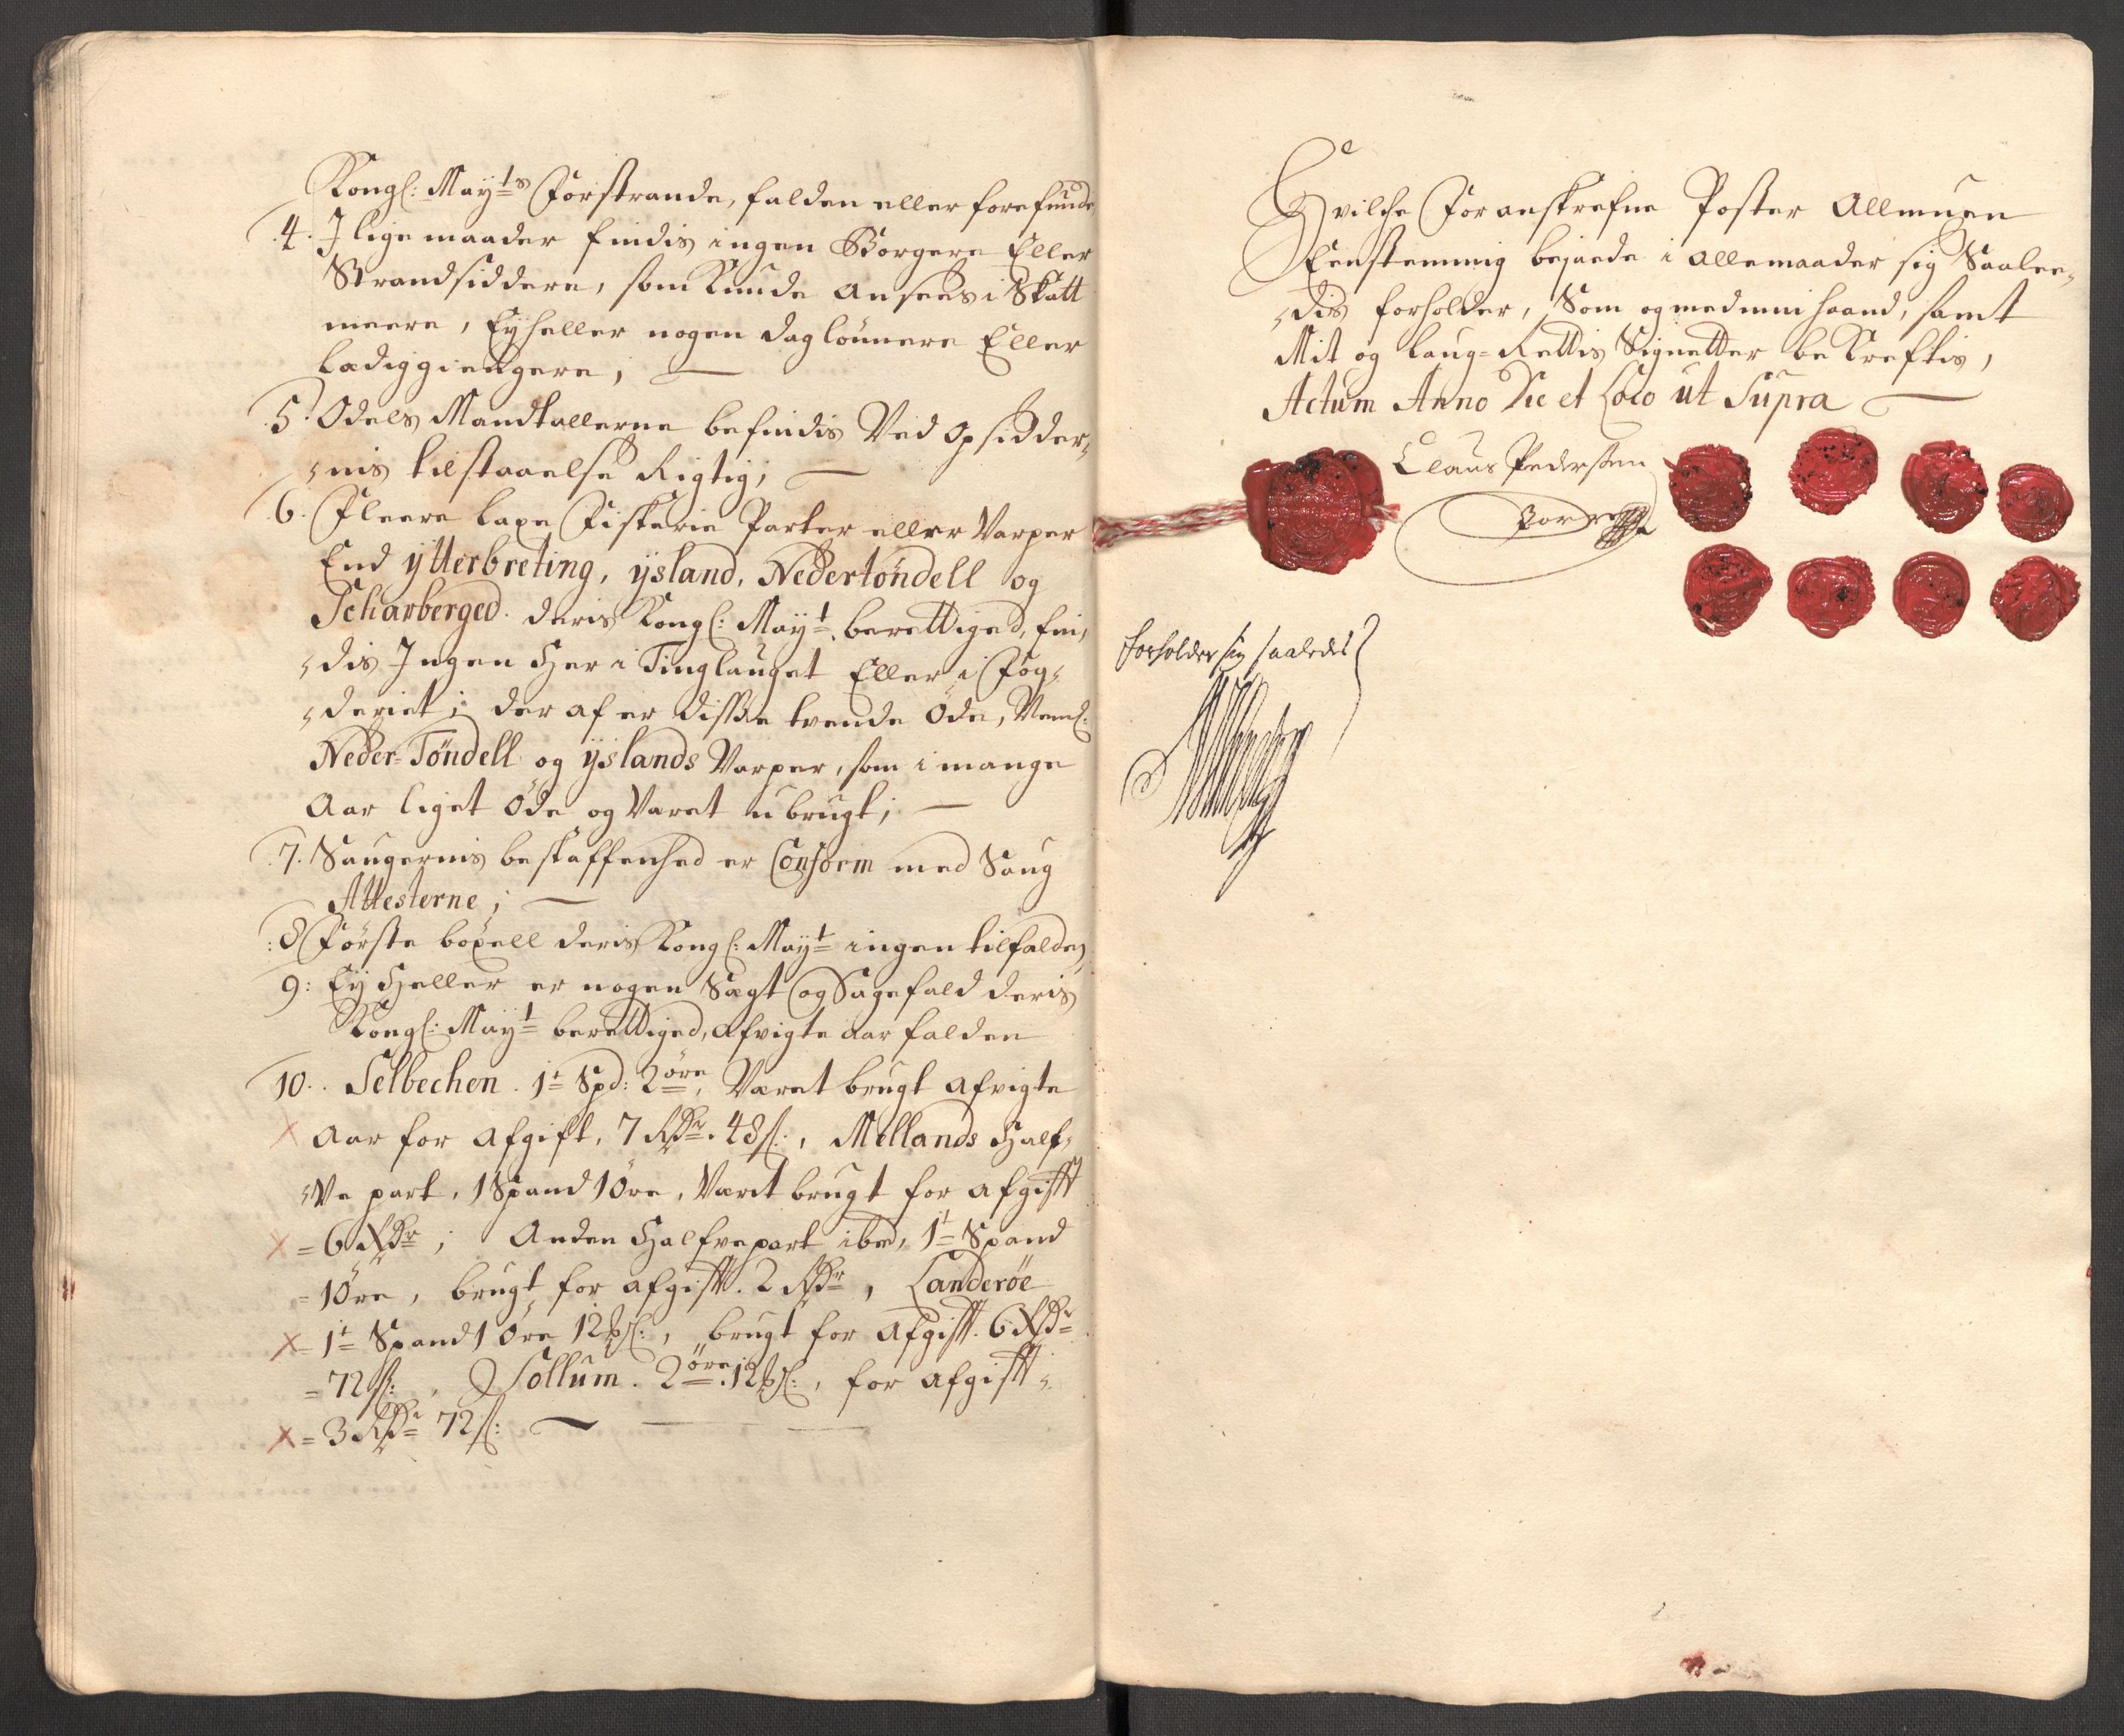 Kongl: Mayts Forstrande, falden eller forefunde,
4. I lige maader findis ingen Borgere Eller
Strandsiddere, som Kunde ansees i Skatt
meere, Ey heller nogen daglönnere Eller
Lædiggiengere;
5. Odels Mandtallerne befindis Ved opsidder,
,,nis tilstaaelse Rigtig;
6. Fleere laxe Fiskerie Parter eller Varper
End ytterbreting, ysland, Nedertöndell og
Scharberged. deris Kongl: Mayt. berettiged, fin,
,,dis Ingen Her i Tinglauget Eller i Fog,
,,deriet; der af er disse tvende öde, Neml:
Neder-Töndell og yslands Varper, som i mange
Aar liget öde og Varet ubrugt;
7. Saugernis beskaffenhed er Conform med Saug
Attesterne;
:8 Förste böxell deris Kongl: Mayt ingen tilfalden
9: Ey Heller er nogen Sagt og Sagefald deris
Kongl: Mayt berettiged, afvigte aar falden
10. Selbechen. 1t Spd: 2 öre, Været brugt afvigte
Aar for afgift, 7 Rdr. 48 s:, Mellands Half,
,,Ve part, 1 Spand 1 öre, Værit brugt for afgifft
= 6 Rdr; Anden Halfvepart ibed, 1t Spand
= 1 öre, brugt for afgifft. 2 Rdr, Landeröe
= 1t Spand 1 öre 12 sl:, brugt for Afgifft. 6 Rdr
= 72 s:, Sollum. 2 öre. 12 sl:, for afgifft
= 3 Rdr 72 s:
Hvilche Foranskrefne Poster Allmuen
Eenstemmig bejaede i allemaader sig Saalee,
,,dis forholder, Som og med min haand, samt
Mit og Laug-Rettis Signetter be Kreftis,
Actum Anno Die et Loco ut Supra
Claus Pedersøn
forholder sig saaledes